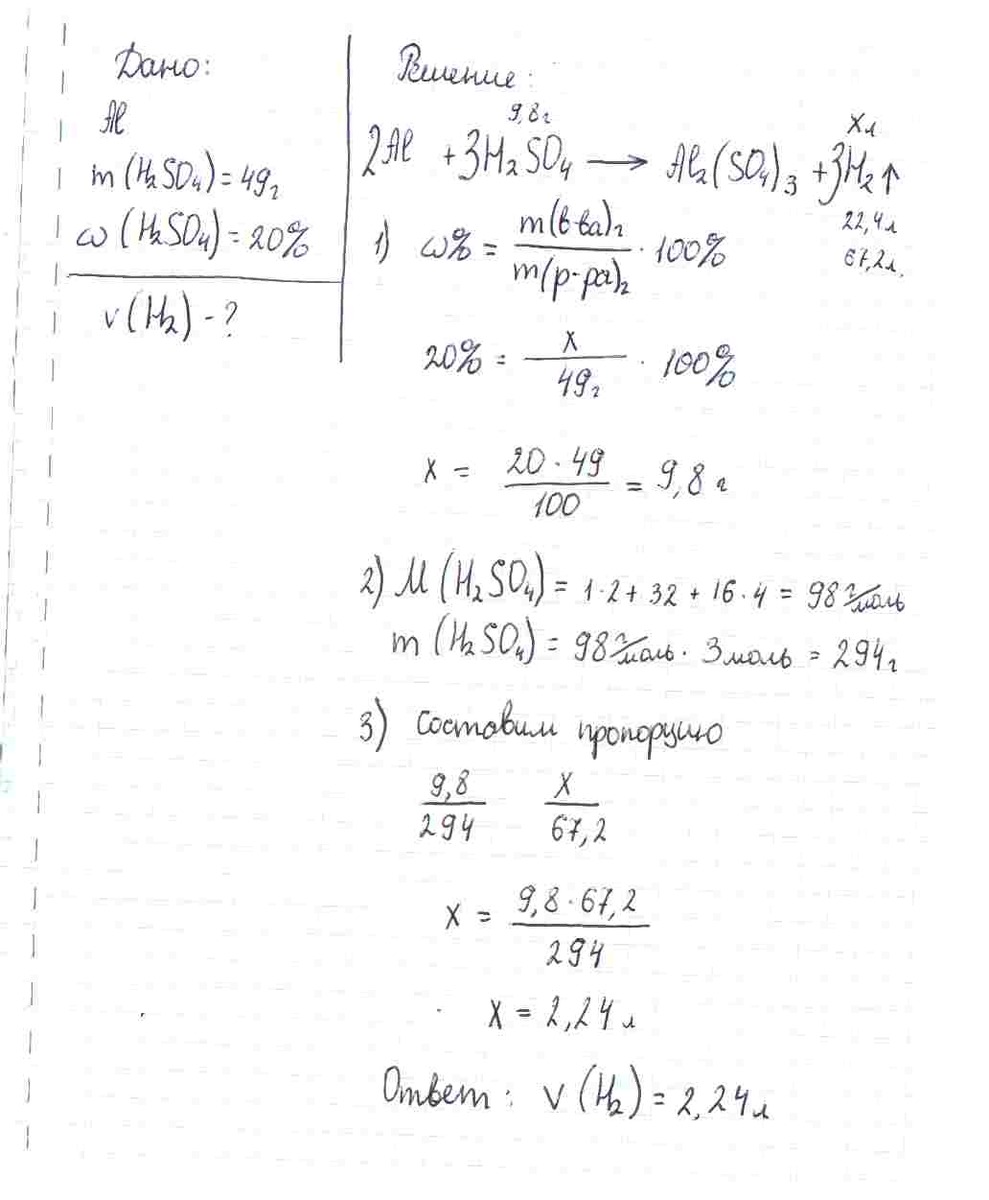 Дано:
Al
m (H₂SO₄) = 49г
ω (H₂SO₄) = 20%
v (H₂) - ?
Решение:
9,8г
xл
2Al + 3H₂SO₄ → Al₂(SO₄)₃ + 3H₂↑
22,4л
67,2л.
1) ω% = m(в-ва)г / m(р-ра)г · 100%
20% = x / 49г · 100%
x = 20 · 49 / 100 = 9,8 г
2) M (H₂SO₄) = 1·2 + 32 + 16·4 = 98 г/моль
m (H₂SO₄) = 98 г/моль · 3моль = 294г
3) Составим пропорцию
9,8 / 294 x / 67,2
x = 9,8 · 67,2 / 294
x = 2,24 л
Ответ: v (H₂) = 2,24л